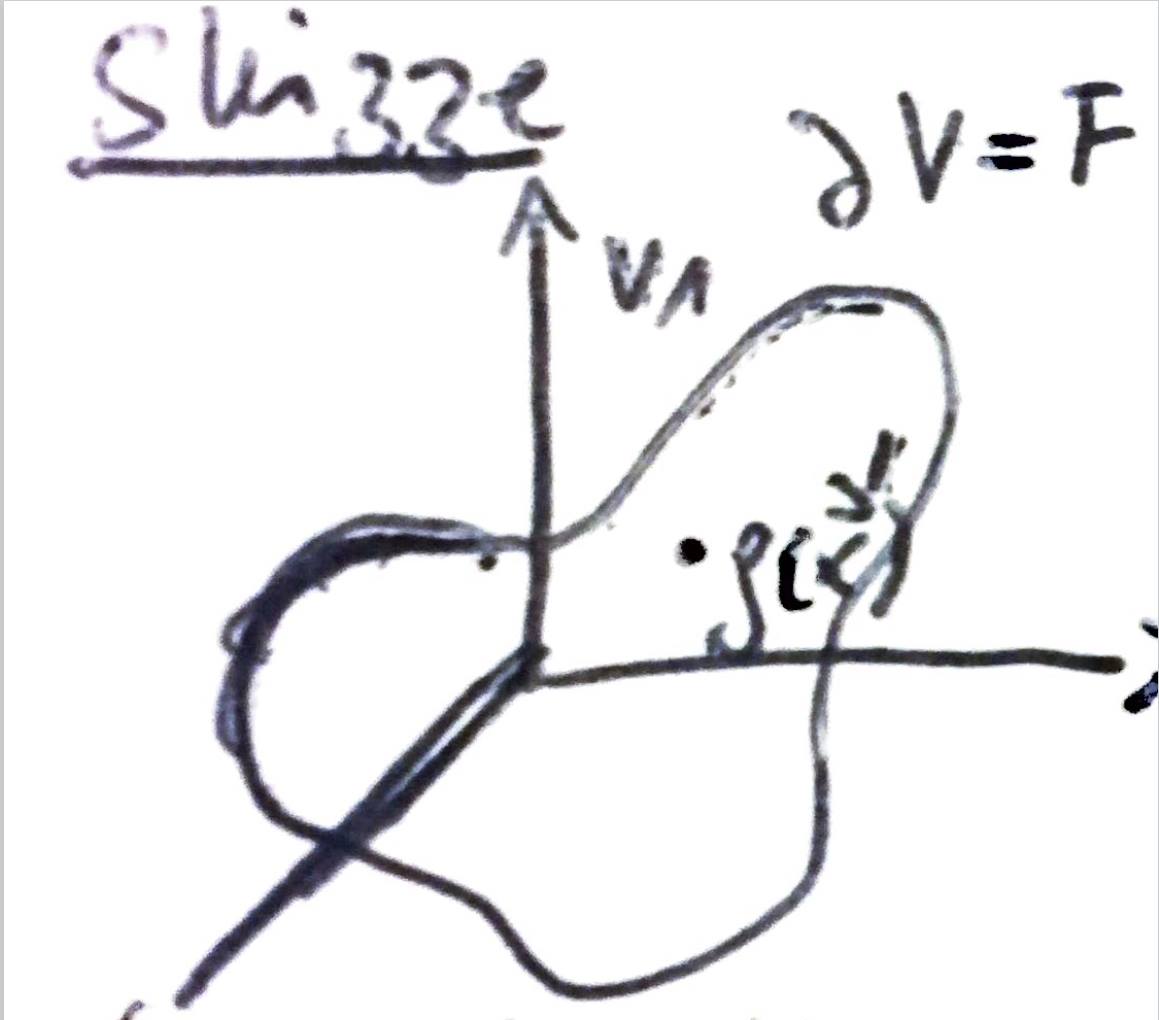 Skizze
∂V = F
V1
ρ(x⃗')